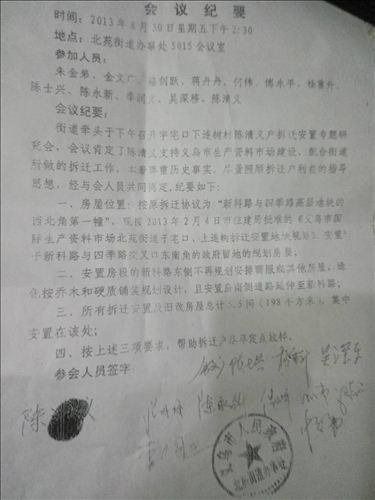 会议纪要
时间：2013年8月30日星期五下午2:30
地点：北苑街道办事处3015会议室
参加人员：
朱金弟、金文广、 剑跃、蒋丹丹、何伟、傅永平、杨 升、
陈士兴、陈永新、季润义、吴深移、陈清义
会议纪要：
街道牵头于下午召开宇宅口下连树村陈清义户拆迁安置专题研
究会，会议肯定了陈清义支持义乌市生产资料市场建设，配合街道
所做的拆迁工作，本着尊重历史事实、尽量照顾拆迁户利益的指导
思想，经与会人员共同商定，纪要如下：
一、房屋位置：按原拆迁协议为“新科路与四季路高层地块的
西北角第一幢”，现按2013年2月4日市住建局批准的《义乌市国
际生产资料市场北苑街道 宅口、上连树拆迁安置地块规划》，安置
于新科路与四季路交叉口东南角的政府留地的规划房屋；
二、安置房段的新科路东侧不再规划安排商服或其他房屋，绿
化按乔木和硬质铺装规划设计，且安置房南侧道路延伸至新科路；
三、所有拆迁安置及旧改房屋总计5.5间（198平方米），集中
安置在该处；
四、按上述三项要求，帮助拆迁户尽早定点放样。
参会人员签字
陈 义
义乌市人民政府
北苑街道办事处